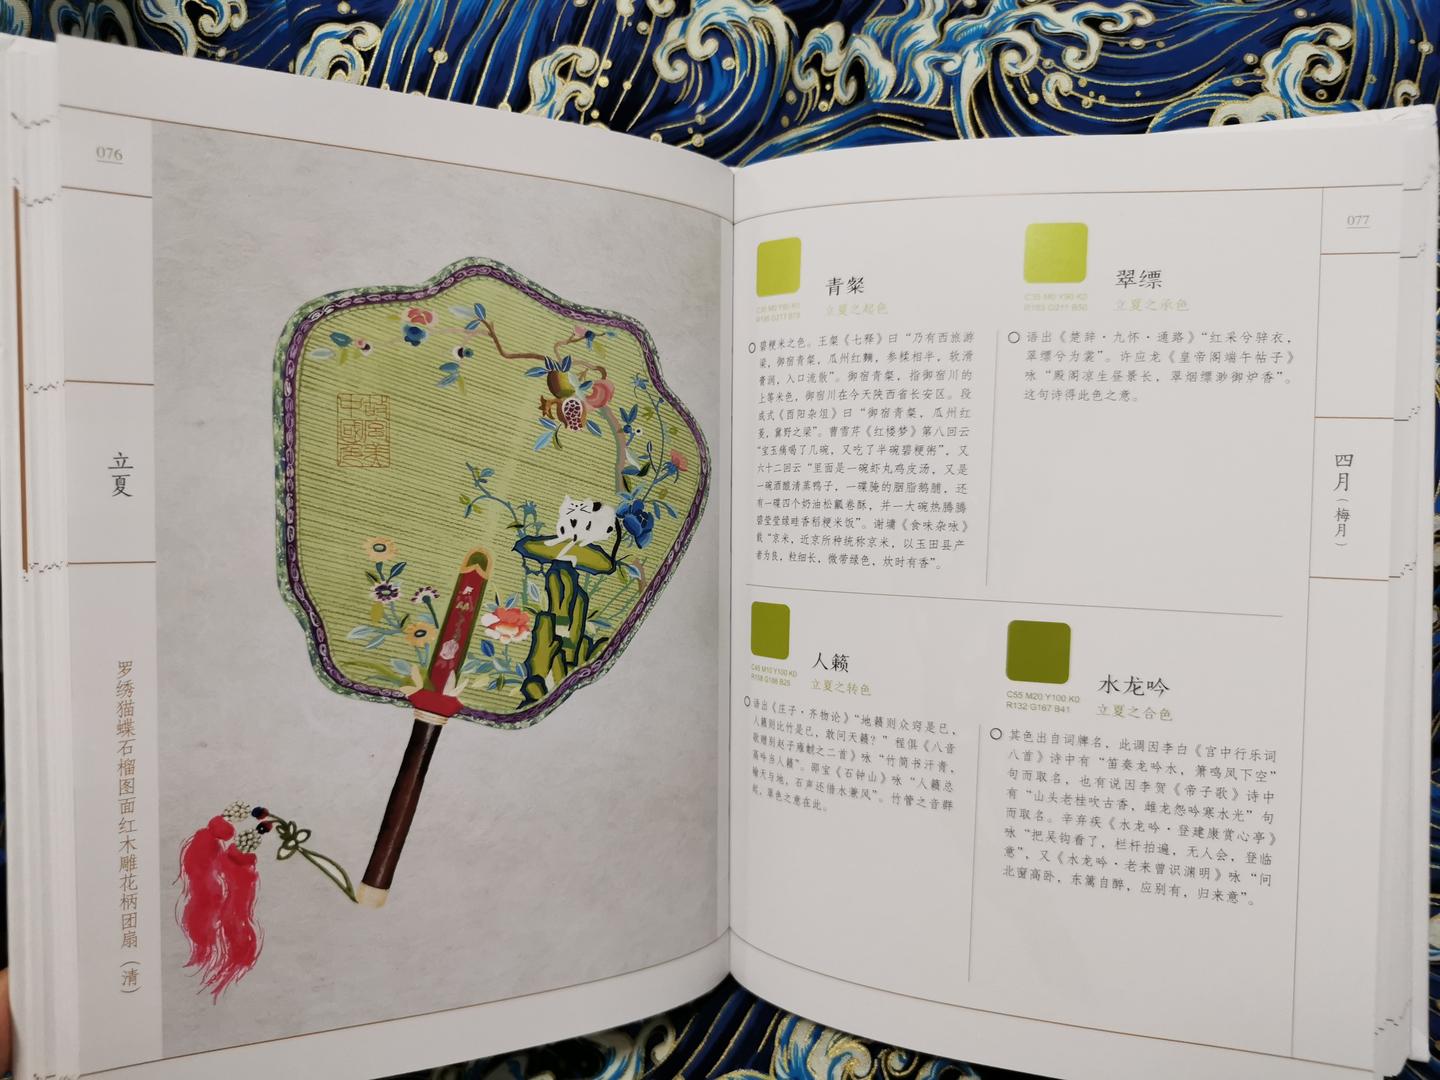 076
立夏
罗绣猫蝶石榴图面红木雕花柄团扇(清)
077
四月(梅月)
青粲
立夏之起色
碧粳米之色。王粲《七释》曰“乃有西旅游
梁，御宿青粲，瓜州红麴，参糅相半，软滑
膏润，入口流散”。御宿青粲，指御宿川的
上等米色，御宿川在今天陕西省长安区。段
成式《酉阳杂俎》曰“御宿青粲，瓜州红
菱，冀野之梁”。曹雪芹《红楼梦》第八回云
“宝玉痛喝了几碗，又吃了半碗碧粳粥”，又
六十二回云“里面是一碗虾丸鸡皮汤，又是
一碗酒酿清蒸鸭子，一碟腌的胭脂鹅脯，还
有一碟四个奶油松瓤卷酥，并一大碗热腾腾
碧莹莹绿畦香稻粳米饭”。谢墉《食味杂咏》
载“京米，近京所种统称京米，以玉田县产
者为良，粒细长，微带绿色，炊时有香”。
翠缥
立夏之承色
C35 M0 Y90 K0
R183 G211 B50
语出《楚辞·九怀·通路》“红采兮骍衣，
翠缥兮为裳”。许应龙《皇帝阁端午帖子》
咏“殿阁凉生昼景长，翠烟缥渺御炉香”。
这句诗得此色之意。
人籁
立夏之转色
C45 M10 Y100 K0
R158 G188 B25
语出《庄子·齐物论》“地籁则众窍是已，
人籁则比竹是已，敢问天籁？”程俱《八音
歌赠别赵子雍帧之二首》咏“竹简书汗青，
高吟当人籁”。邵宝《石钟山》咏“人籁总
输天与地，石声还借水兼风”。竹管之音群
起，翠色之意在此。
水龙吟
立夏之合色
C55 M20 Y100 K0
R132 G167 B41
其色出自词牌名，此调因李白《宫中行乐词
八首》诗中有“笛奏龙吟水，箫鸣凤下空”
句而取名，也有说因李贺《帝子歌》诗中
有“山头老桂吹古香，雌龙怨吟寒水光”句
而取名。辛弃疾《水龙吟·登建康赏心亭》
咏“把吴钩看了，栏杆拍遍，无人会，登临
意”，又《水龙吟·老来曾识渊明》咏“问
北窗高卧，东篱自醉，应别有，归来意”。